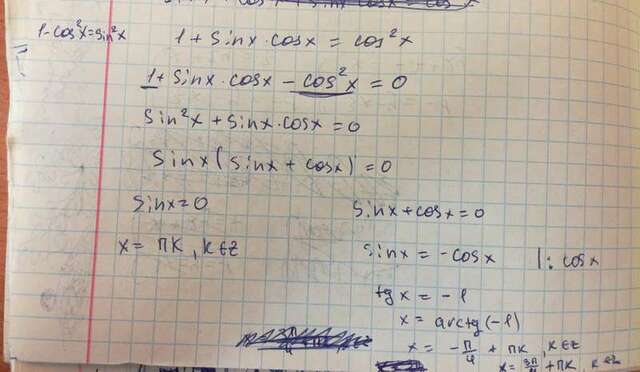 1-cos²x=sin²x
1 + sinx·cosx = cos²x
1 + sinx·cosx - cos²x = 0
sin²x + sinx·cosx = 0
sinx(sinx + cosx) = 0
sinx=0
sinx+cosx=0
x= πk, k∈z
sinx = -cosx |: cosx
tgx = -1
x= arctg(-1)
x= -π/4 + πk, k∈z
x= 3π/4 + πk, k∈z